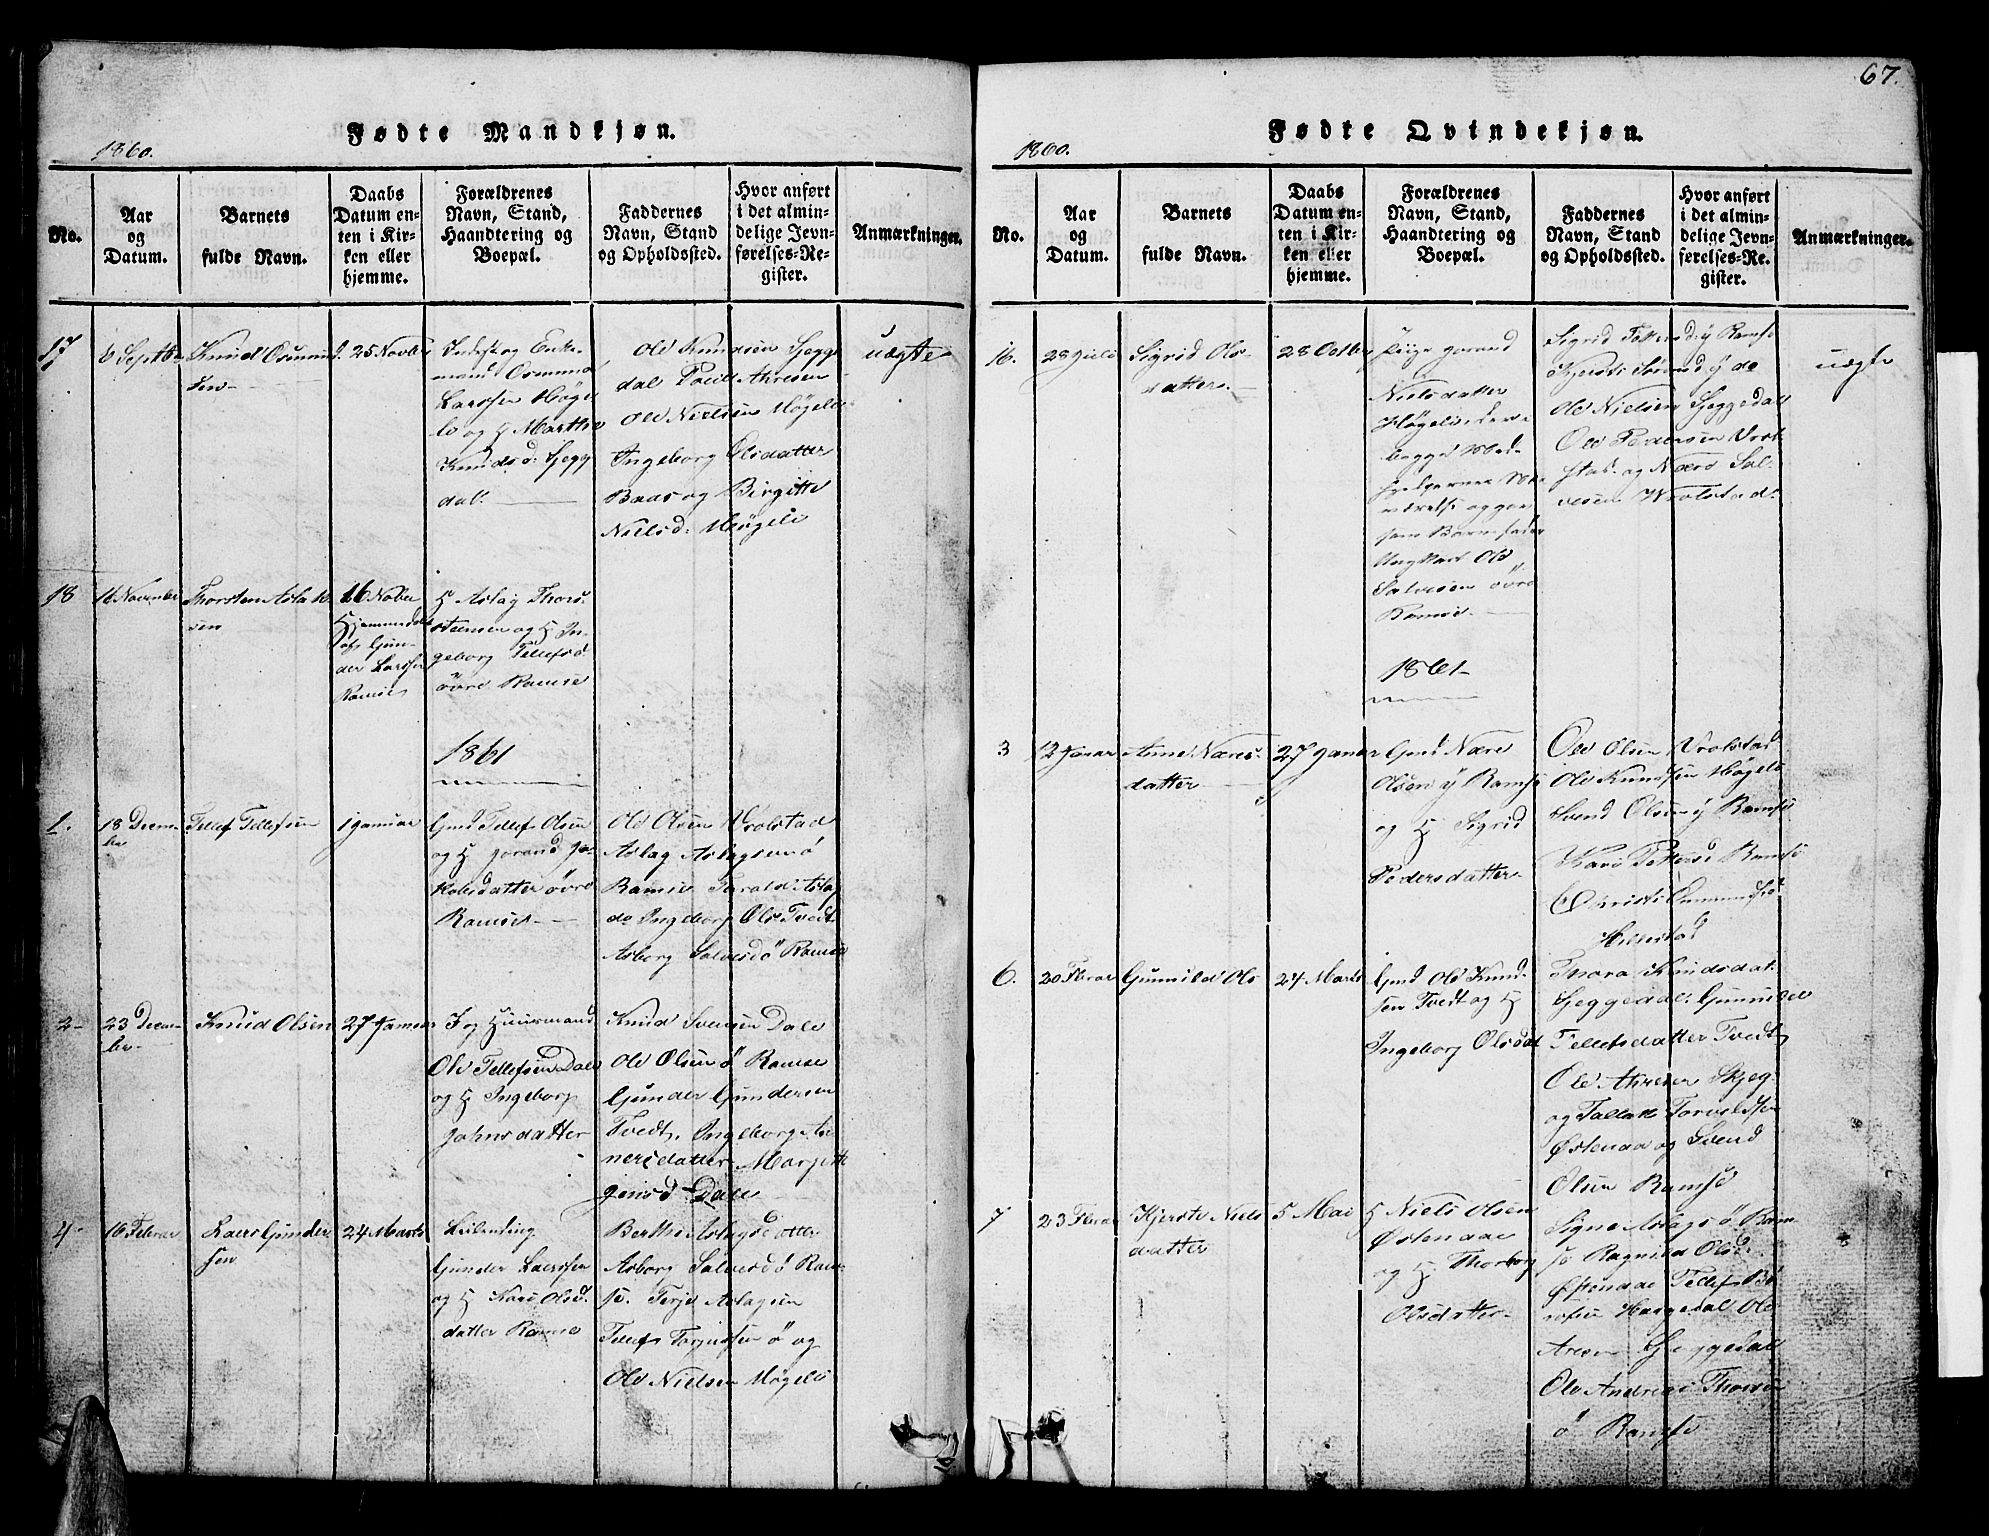 67.
Fødte Mandkjøn.
1860.
No.
Aar
og
Datum.
Barnets
fulde Navn.
Daabs
Datum en-
ten i Kir-
ken eller
hjemme.
Forældrenes
Navn, Stand,
Haandtering og
Boepæl.
Faddernes
Navn, Stand
og Opholdssted.
Hvor anført
i det almin-
delige Jevn-
førelses-Re-
gister.
Anmærkninger.
17
6 Septbr
Knud Osmund
sen
25 Novbr
Inderst og Enke-
mand Osmund
Larssen Høge
li og H Marthe
Knudsd: Segg
dal.
Ole Knudsen Segge
dal Poul Ahresen
Ole Nielsen Høgeli
Ingeborg Olsdatter
Baas og Birgitte
Nielsd: Høgeli
uægte
18
16 November
Thorsten Aslak
sen
16 Nobr
Hjemmedøbt
af Gun-
der Larssen
Ramse
H Aslag Thors-
steensen og H In-
geborg Tellefsd
øvre Ramse
1861
1.
18 Decem-
ber
Tellef Tellefsen
1 januar
Gmd Tellef Olsen
og H jorand Ja-
kobsdatter øvre
Ramse
Ole Olsen Vrolstad
Aslag Aslagsen ø
Ramse Tarald Aslag
do Ingeborg Ols Tvedt
Asborg Salvesd ø Ramse
2
23 Decem-
ber
Knud Olsen
27 Januar
I og Huusmand
Ole Tellefsen Dale
og H Ingeborg
Johnsdatter
Knud Svensen Dale
Ole Olsen ø Ramse
Gunder Gundersen
Tvedt, Ingeborg An-
nersdatter Margitt
Jensd Dale
4
16 Februar
Laers Gunder
sen
24 Marts
Gunder Laerssen
og H Kari Olsd.
datter Ramse
Berthe Aslagsdatter
Asborg Salvesd ø Ram-
se. Terje Aslagsen
Tellef Torjussen ø og
Ole Nielsen Høgeli
Fødte Qvindekjøn.
1860.
No.
Aar
og
Datum.
Barnets
fulde Navn.
Daabs
Datum en-
ten i Kir-
ken eller
hjemme.
Forældrenes
Navn, Stand,
Haandtering og
Boepæl.
Faddernes
Navn, Stand
og Opholdssted.
Hvor anført
i det almin-
delige Jevn-
førelses-Re-
gister.
Anmærkninger.
16.
28 Juli
Sigrid Ols-
datter
28 Octbr
Pige jorand
Nielsdatter
Høgeli
som Barnefader
Ungkarl Ole
Salvesen øvre
Ramse
Sigrid y Ramse
Kjersti y do
Ole Nielsen Seggedal
Ole Pedersen Vrol-
stad og Næri Sal-
vesen Wrolstad
uægte
1861
3
12 Januar
Anne Næres-
datter
27 Januar
Gmd Nære
Olsen y Ramse
og H Sigrid
Pedersdatter
Ole Olsen Vrolstad
Ole Knudsen Høgeli
Svend Olsen y Ramse
Kari Ramse
Christi
Hillestad
6.
20 Fbrar
Gunnild Ols
24 Marts
Gmd Ole Knud-
sen Tvedt og H
Ingeborg Olsdat
Thora Knudsdat.
Seggedal. Gunnild
Tellefsdatter Tvedt
Ole Ahresen Skjeg-
og Tallak Torvaldsen
Østenaa og Svend
Olsen Ramse
7
23 Fbrar
Kjersti Niels
datter
5 Mai
H Niels Olsen
Østenaae
og H Thorborg
Olsdatter
Signe Aslags ø Ram
se Ragnild Olsd.
Østenaae Tellef
Hareedal Ole
Aresen Seggedal
Ole Andreas Thorsen
ø Ramse